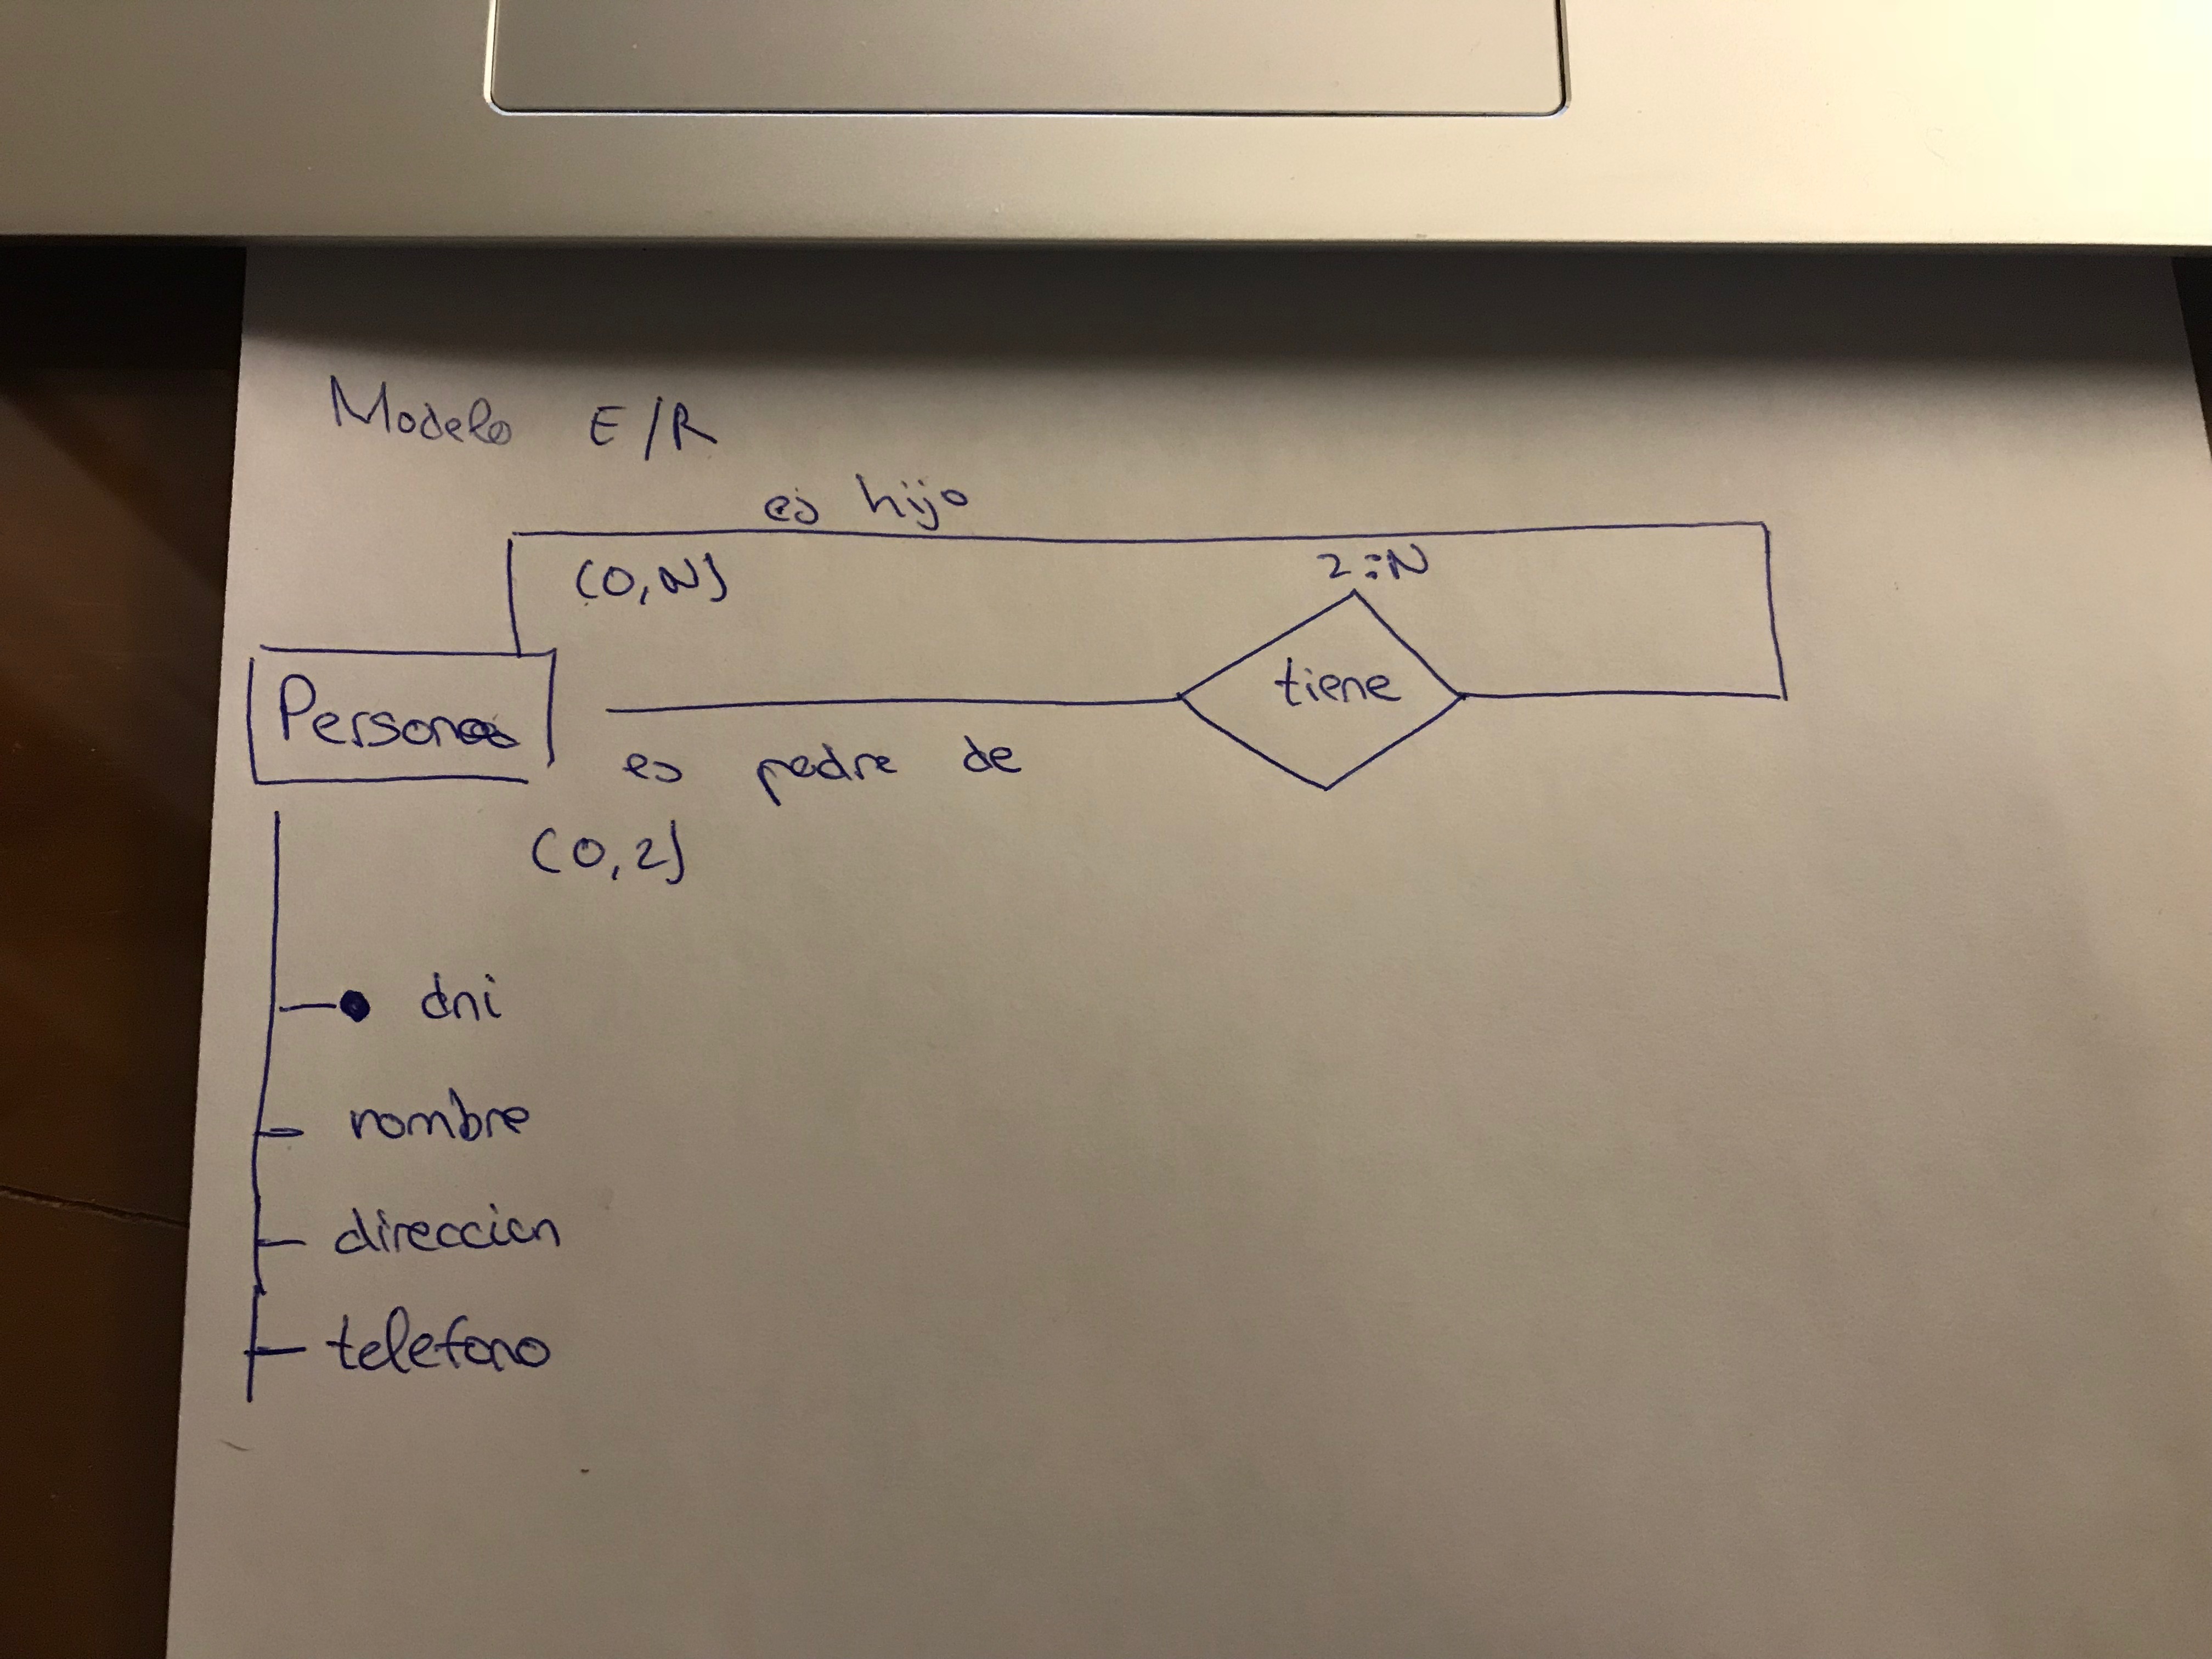 Modelo E/R
es hijo
(0,N)
2:N
Persona
tiene
es padre de
(0,2)
dni
nombre
direccion
telefono